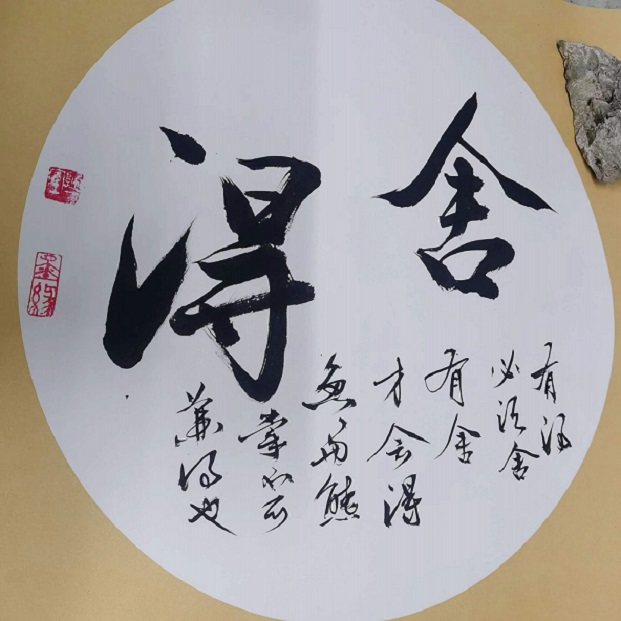 舍得
有得
必須舍
有舍
才会得
魚与熊
掌不可
兼得也